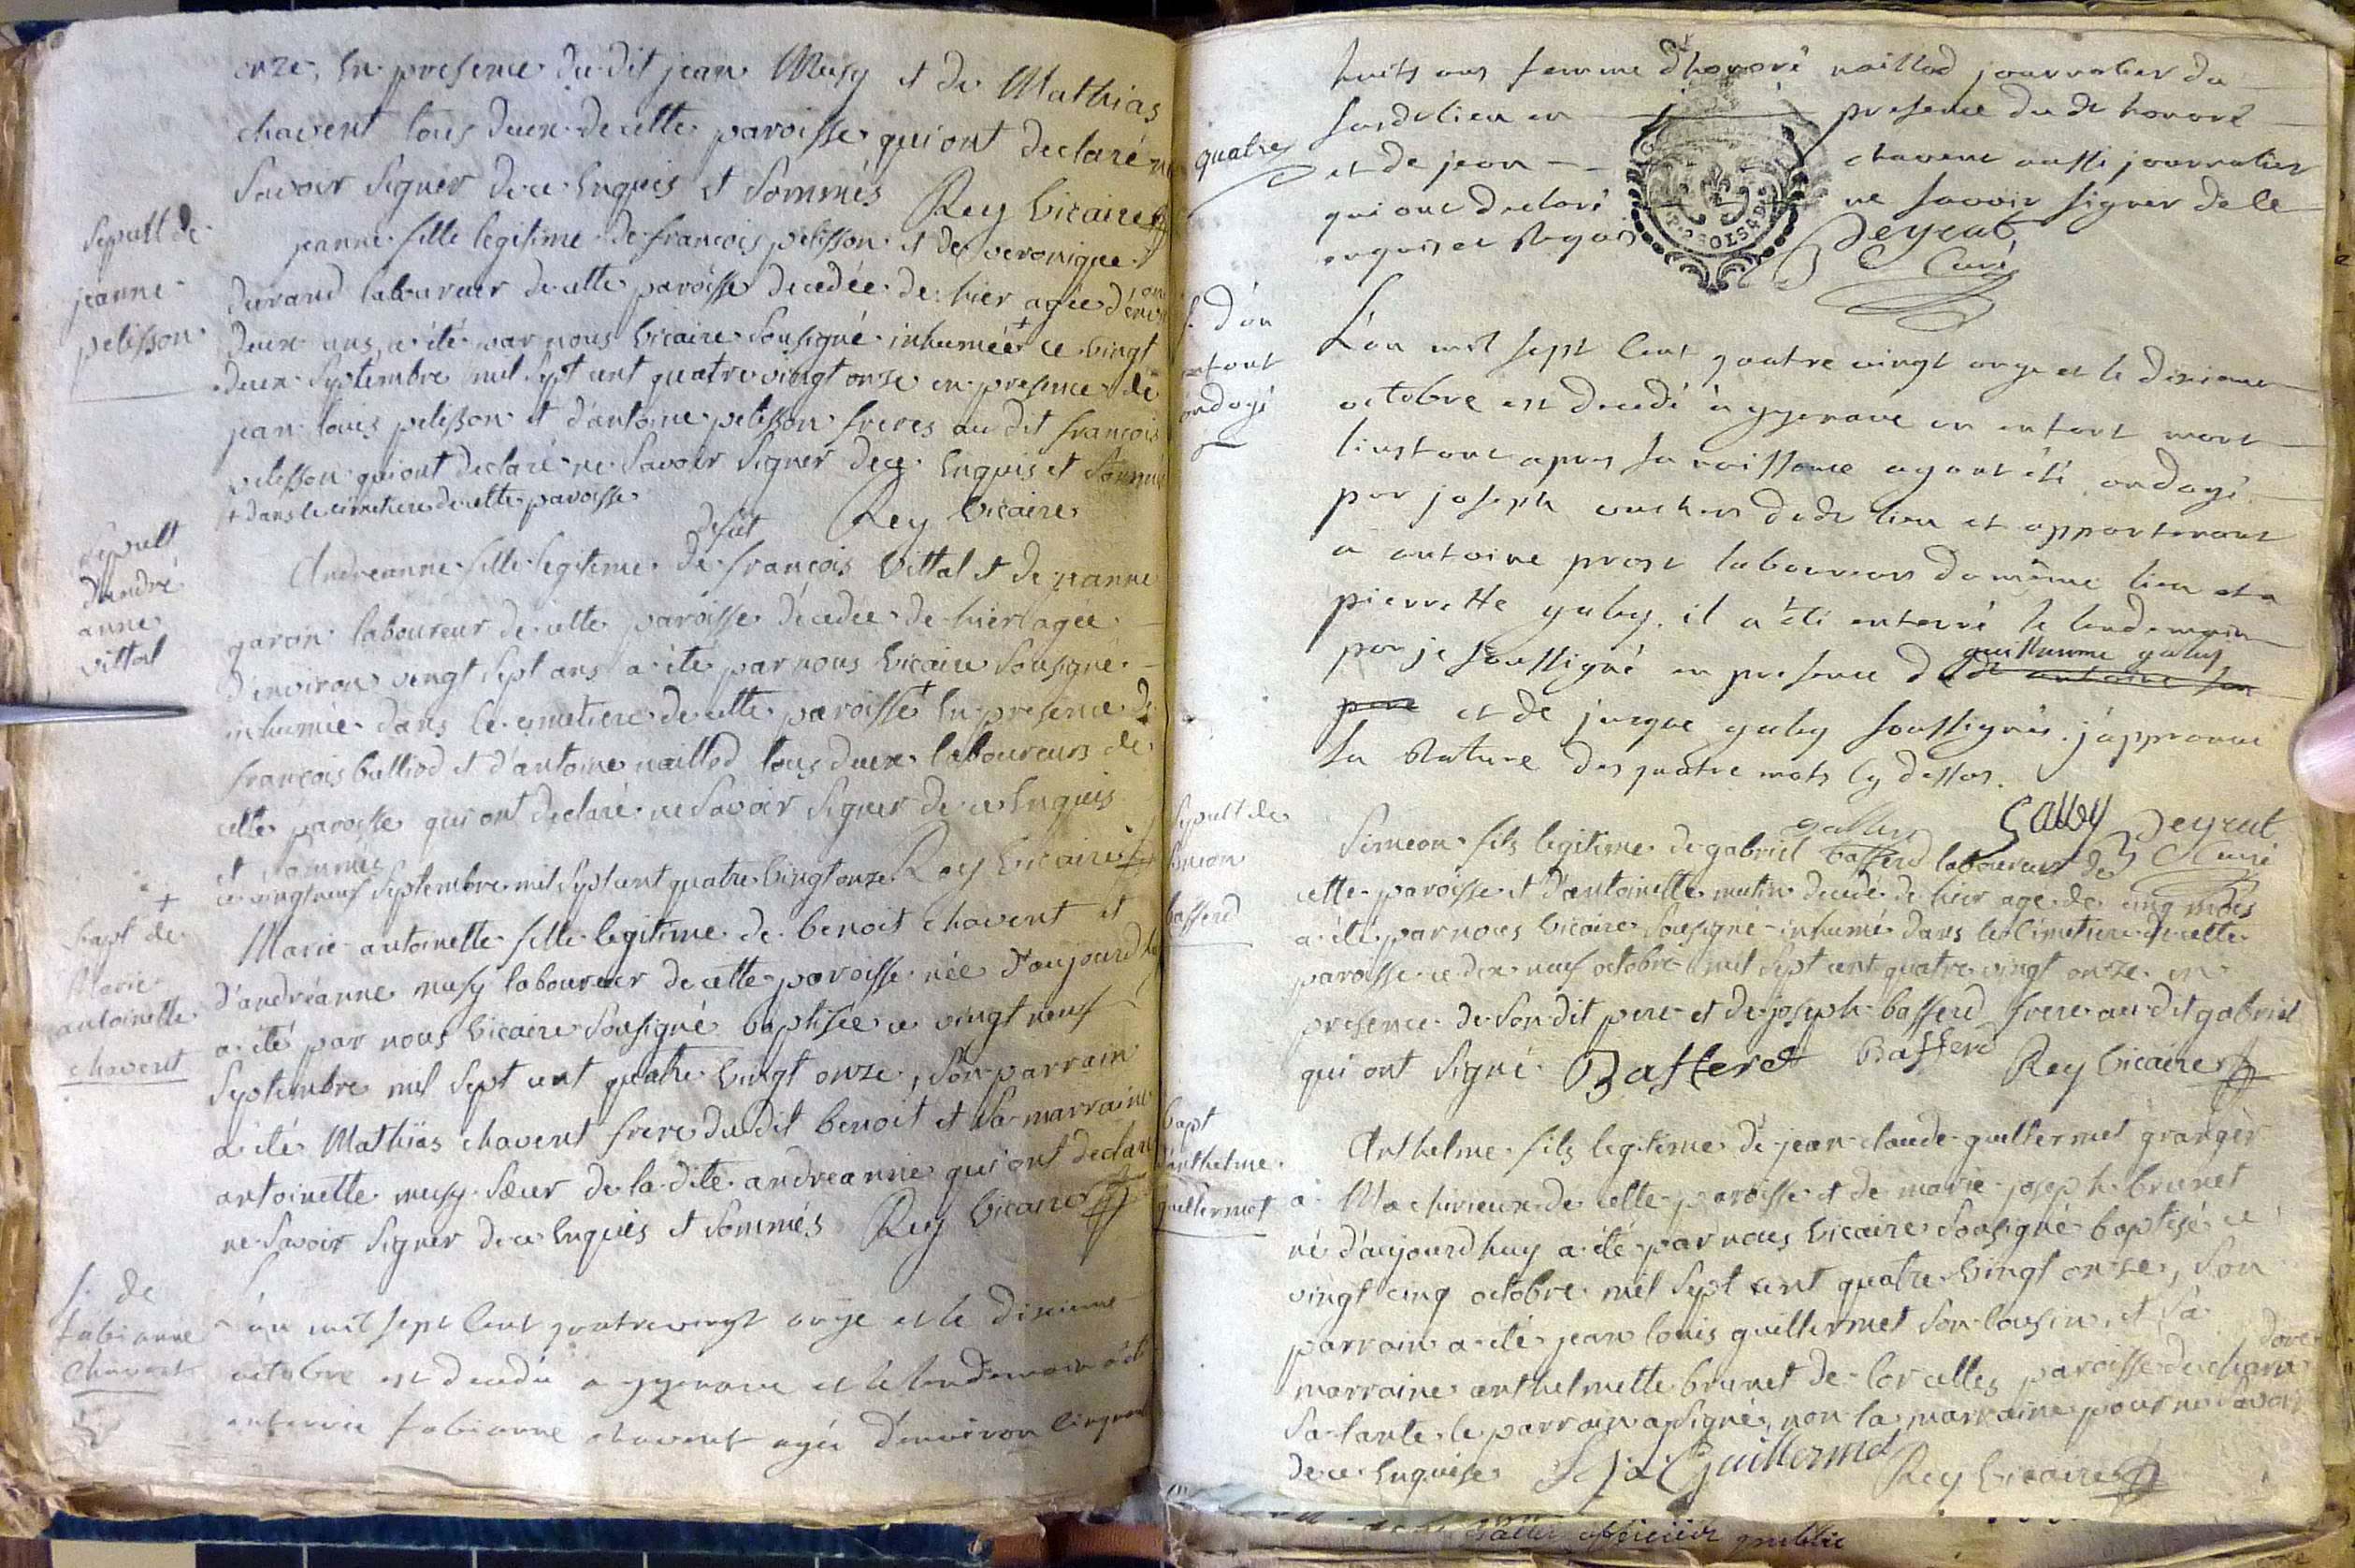 onze, En presence du dit jean Musy et de Mathias
chavent tous deux de cette paroisse qui ont declaré ne
Savoir Signer de ce Enquis et Sommés Rey Vicaire
Sepult de
jeanne
pelisson
jeanne fille legitime de francois pelisson et de veronique
durand laboureur de cette paroisse decedée de hier agée d'environ
deux ans, a été par nous Vicaire Sousigné inhumée + ce vingt
deux Septembre mil Sept cent quatre vingt onze en presence de
jean louis pelisson et d'antoine pelisson freres au dit francois
pelisson qui ont declaré ne Savoir Signer de ce Enquis et Sommés
+ dans le cimetiere de cette paroisse Rey Vicaire
sepult
d'andré
anne
vittal
defut
Andreanne fille legitime de françois Vittal et de jeanne
garon laboureur de cette paroisse décedée de hier agée
d'environ vingt Sept ans a été par nous Vicaire Sousigné
inhumée dans le cimetiere de cette paroisse + En presence de
françois balliod et d'antoine naillod tous deux laboureurs de
cette paroisse qui ont declaré ne Savoir Signer de ce Enquis
et Sommés Rey Vicaire
+ ce vingt neuf Septembre mil Sept cent quatre vingt onze
bapt de
Marie
antoinette
chavent
Marie antoinette fille legitime de benoit chavent et
d'andréanne musy laboureur de cette paroisse née d'aujourd'huy
a été par nous Vicaire Sousigné baptisée ce vingt neuf
Septembre mil Sept cent quatre vingt onze, Son parrain
a été Mathias chavent frere du dit benoit et Sa marraine
antoinette musy Sœur de la dite andreanne qui ont declaré
ne Savoir Signer de ce Enquis et Sommés Rey Vicaire
S. de
fabianne
chavent
L'an mil sept cent quatre vingt onze et le dixieme
octobre est decedée a gyerave et le lendemain a été
enterrée fabianne chavent agée d'environ cinquante
quatre
huits ans femme d'honoré naillod journalier du
susd lieu en presence du dt honoré
et de jean chavent aussi journalier
qui ont declaré ne savoir signer de ce
enquis et requis Deyeut
Curé
S. d'un
enfant
ondoyé
L'an mil sept cent quatre vingt onze et le dixieme
octobre est decedé a gyerave un enfant mort
l'instant apres sa naissance ayant été ondoyé
par joseph du dt lieu et appartenant
a antoine prost laboureur du même lieu et a
pierrette galby. il a été enterré le lendemain
par je soussigné en presence de guillaume galby
et de jacque galby soussignés. j'approuve
la rature des quatre mots cy dessus.
Galby Deyeut
Curé
Sepult de
Simeon
bafferd
Simeon fils legitime de gabriel bafferd laboureur de
cette paroisse et d'antoinette mutin decedé de hier agé de cinq mois
a été par nous Vicaire Sousigné inhumé dans le Cimetiere de cette
paroisse ce dix neuf octobre mil Sept cent quatre vingt onze en
presence de Son dit pere et de joseph bafferd frere au dit gabriel
qui ont Signé. Bafferd Bafferd Rey Vicaire
bapt
d'anthelme
guillermet
Anthelme fils legitime de jean claude guillermet granger
a Machirieux de cette paroisse et de marie joseph brunet
né d'aujourd huy a été par nous Vicaire Sousigné baptisé ce
vingt cinq octobre mil Sept cent quatre vingt onze, Son
parrain a été jean louis guillermet Son Cousin, et Sa
marraine anthelmette brunet de Corcelles paroisse de
Sa tante le parrain a Signé, non la marraine pour ne Savoir
de ce Enquise Guillermet Rey Vicaire
officier public